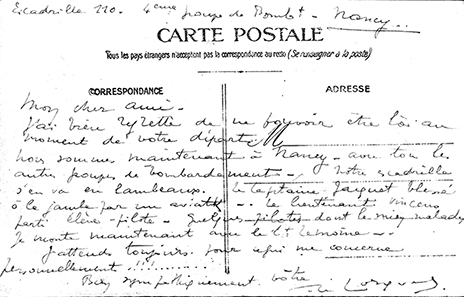 Escadrille 110. 4ème groupe de Bombt - Nancy
CARTE POSTALE
Tous les pays étrangers n'acceptent pas la correspondance au recto (Se renseigner à la poste)
CORRESPONDANCE
ADRESSE
Mon cher ami -
J'ai bien regretté de ne pouvoir être là au
moment de votre départ
nous sommes maintenant à Nancy - avec tous les
autres groupes de bombardement - Notre escadrille
s'en va en lambeaux. Le Capitaine Jaquet blessé
à la jambe par un - Le lieutenant
parti élève-pilote - Quelques pilotes dont le mien malades
Je monte maintenant avec le Lt Lemoine -
J'attends toujours pour ce qui me concerne
personnellement !!!
Bien sympathiquement vôtre